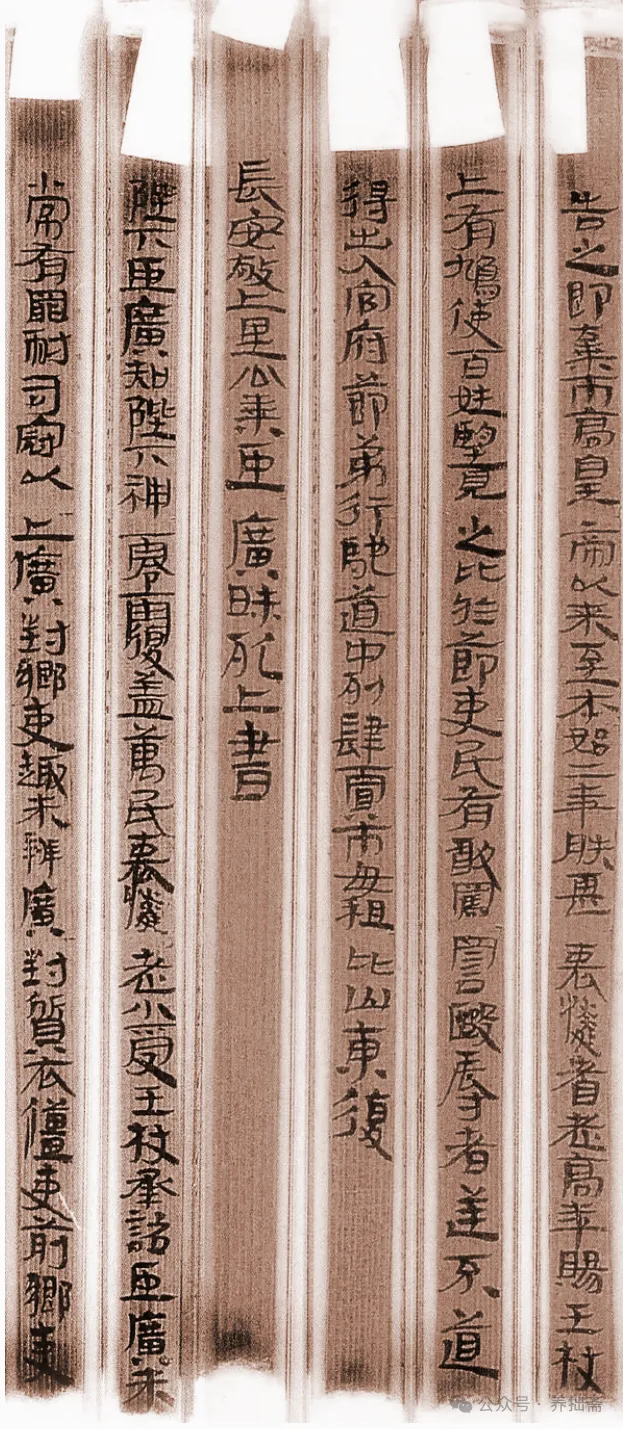 告之即棄市高皇帝以来至本始二年朕甚哀憐耆老高年賜王杖
上有鳩使百姓望見之比於節吏民有敢罵詈毆辱者逆不道
得出入官府節弟行馳道中列肆賈市毋租比山東復
長安敬上里公乘臣廣昧死上書
陛下臣廣知陛下神零覆盖萬民哀憐老小受王杖承詔臣廣未
常有罪耐司寇以上廣對鄉吏趣未辨廣對質衣僵吏前鄉吏
公众号·养拙斋